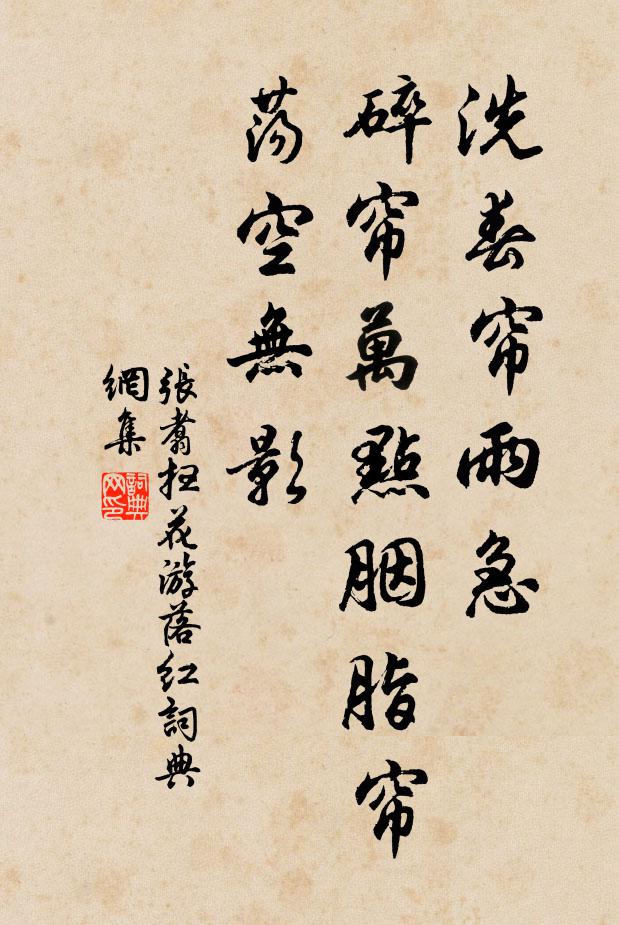 洗春帘雨急
碎帘萬點胭脂帘
蕩空無影
張翥掃花游落紅詞典
網集
詞典
网印